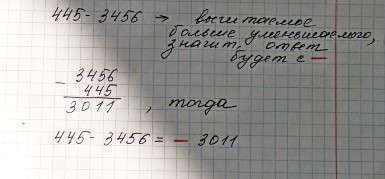 445 - 3456 → вычитаемое
больше уменьшаемого,
значит, ответ
будет с —
- 3456
445
3011 , тогда
445 - 3456 = - 3011